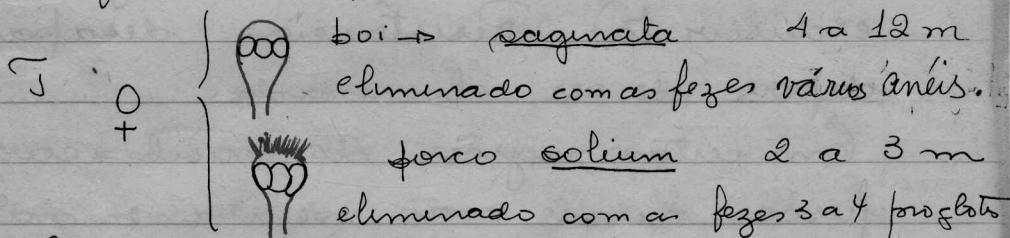 boi → saginata 4 a 12 m
eliminado com as fezes vários anéis.
T ♀
porco solium 2 a 3 m
eliminado com as fezes 3 a 4 proglots